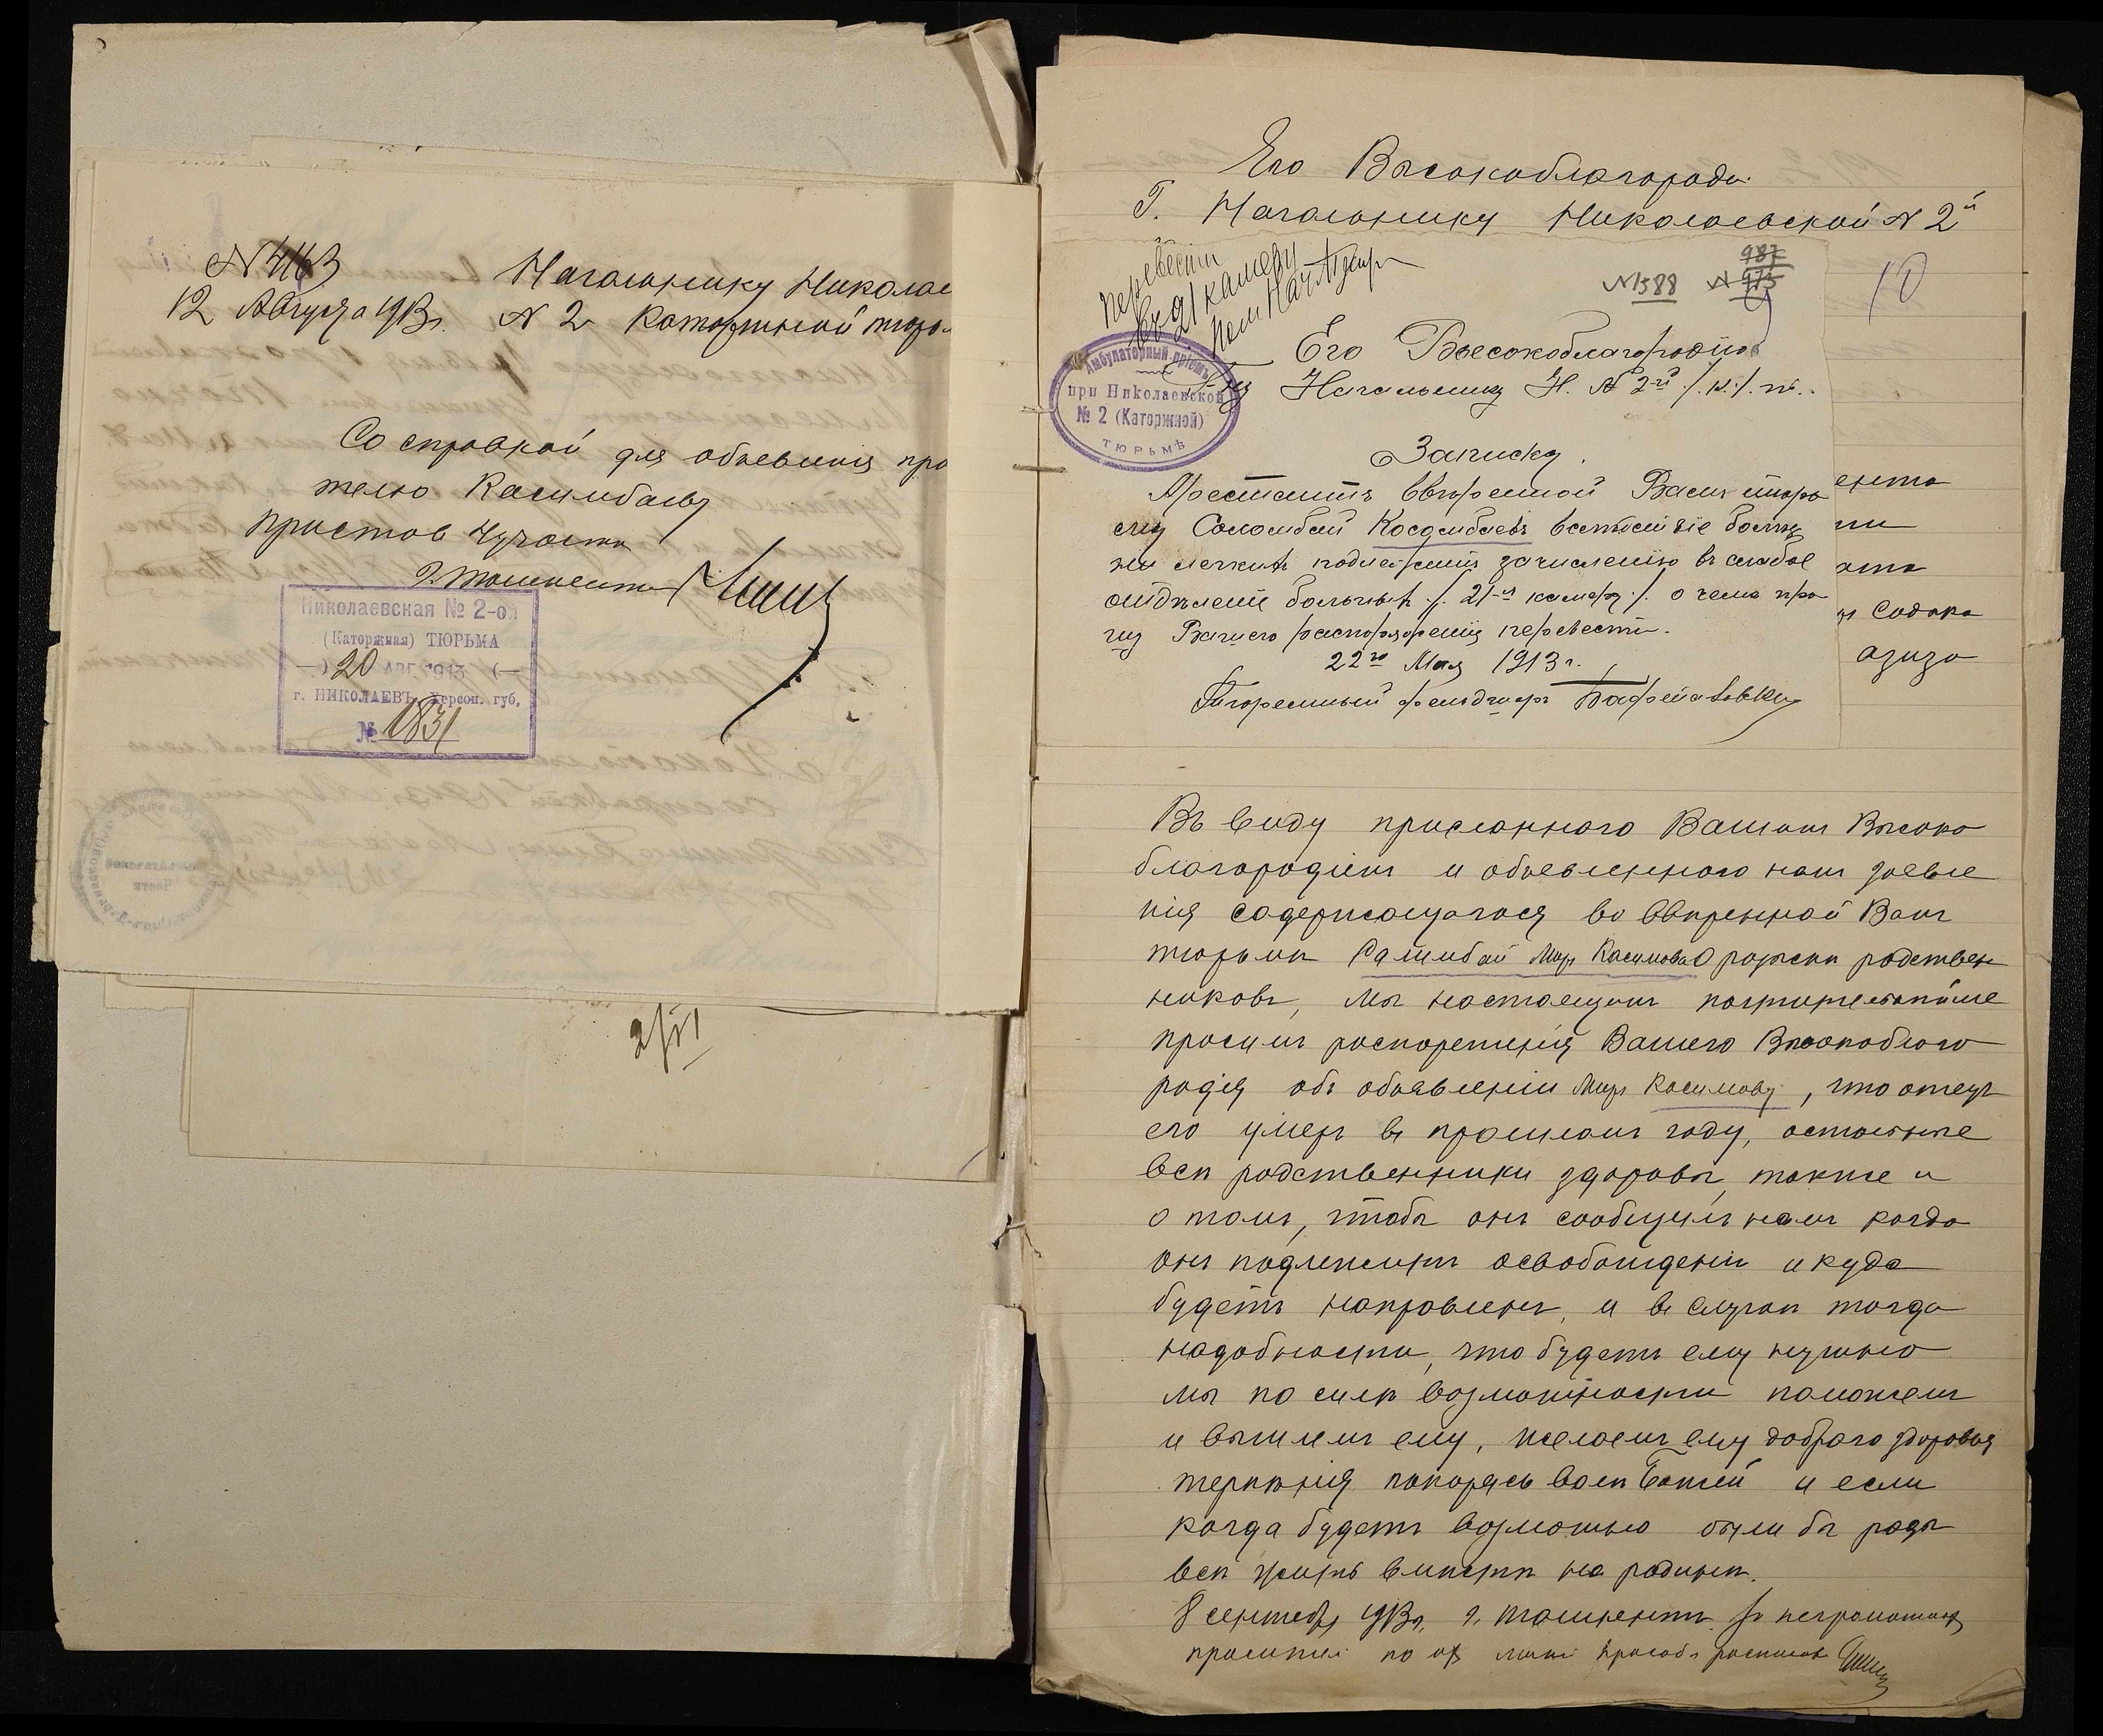 N 4163
12 Августа 1913 г.
Начальнику Николае
N 2 Каторжной тюрь
Со справкой для объявленія про
телю Касимбаеву
Приставъ 4 участка
г. Ташкента
Николаевская № 2-ой
(Каторжная) ТЮРЬМА
20 АВГ 1913
г. НИКОЛАЕВЪ, Херсон. губ,
№ 1831
2/VI
Его Высокоблагороди
Г. Начальнику Николаевской N 2й
перевести
въ 21 камеру
987
N 1588 N 973
10
Его Высокоблагородію
Начальнику Н. N 2й /.к./. т.
Амбулаторный пріемъ
при Николаевской
№ 2 (Каторжной)
ТЮРЬМѢ
Записка.
Арестантъ ввѣренной Вамъ тюрь
мы Саломбай Косдомбаевъ вслѣдствіе болѣз
ни легкихъ подлежитъ зачисленію въ слабое
отдѣленіе больныхъ /. 21-й камеры /. о чемъ про
шу Вашего распоряженія перевести.
22го Мая 1913 г.
Тюремный фельдшеръ
ента
ми
ата
Содыка
азиза
Въ виду присланного Вашим Высоко
благородіем и объевленного нам заевле
нія содержащагося во ввѣренной Вам
тюрьмѣ Салимбай Мир Касимова О розыскѣ родствен
никовъ, мы настоещим почтительнѣйше
просим распореженія Вашего Высокоблаго
родія объ объявленіи Мир Касимову, что отец
его умеръ в прошлом году, остальные
всѣ родственники здоровы, также и
о томъ, чтобы он сообщилъ нам когда
он подлежит освобожденію и куда
будетъ направлен, и в случаѣ тогда
надобности, что будетъ ему нужно
мы по силѣ возможности поможем
и вышлем ему, желаем ему доброго здоровья
терпѣнія покорясь воли Божіей и если
когда будетъ возможно были бы рады
всѣ жить вмѣстѣ на родинѣ.
8 сентября 1913 г. г. Ташкентъ. За неграмотных
просителі по их личной просьбѣ росписался